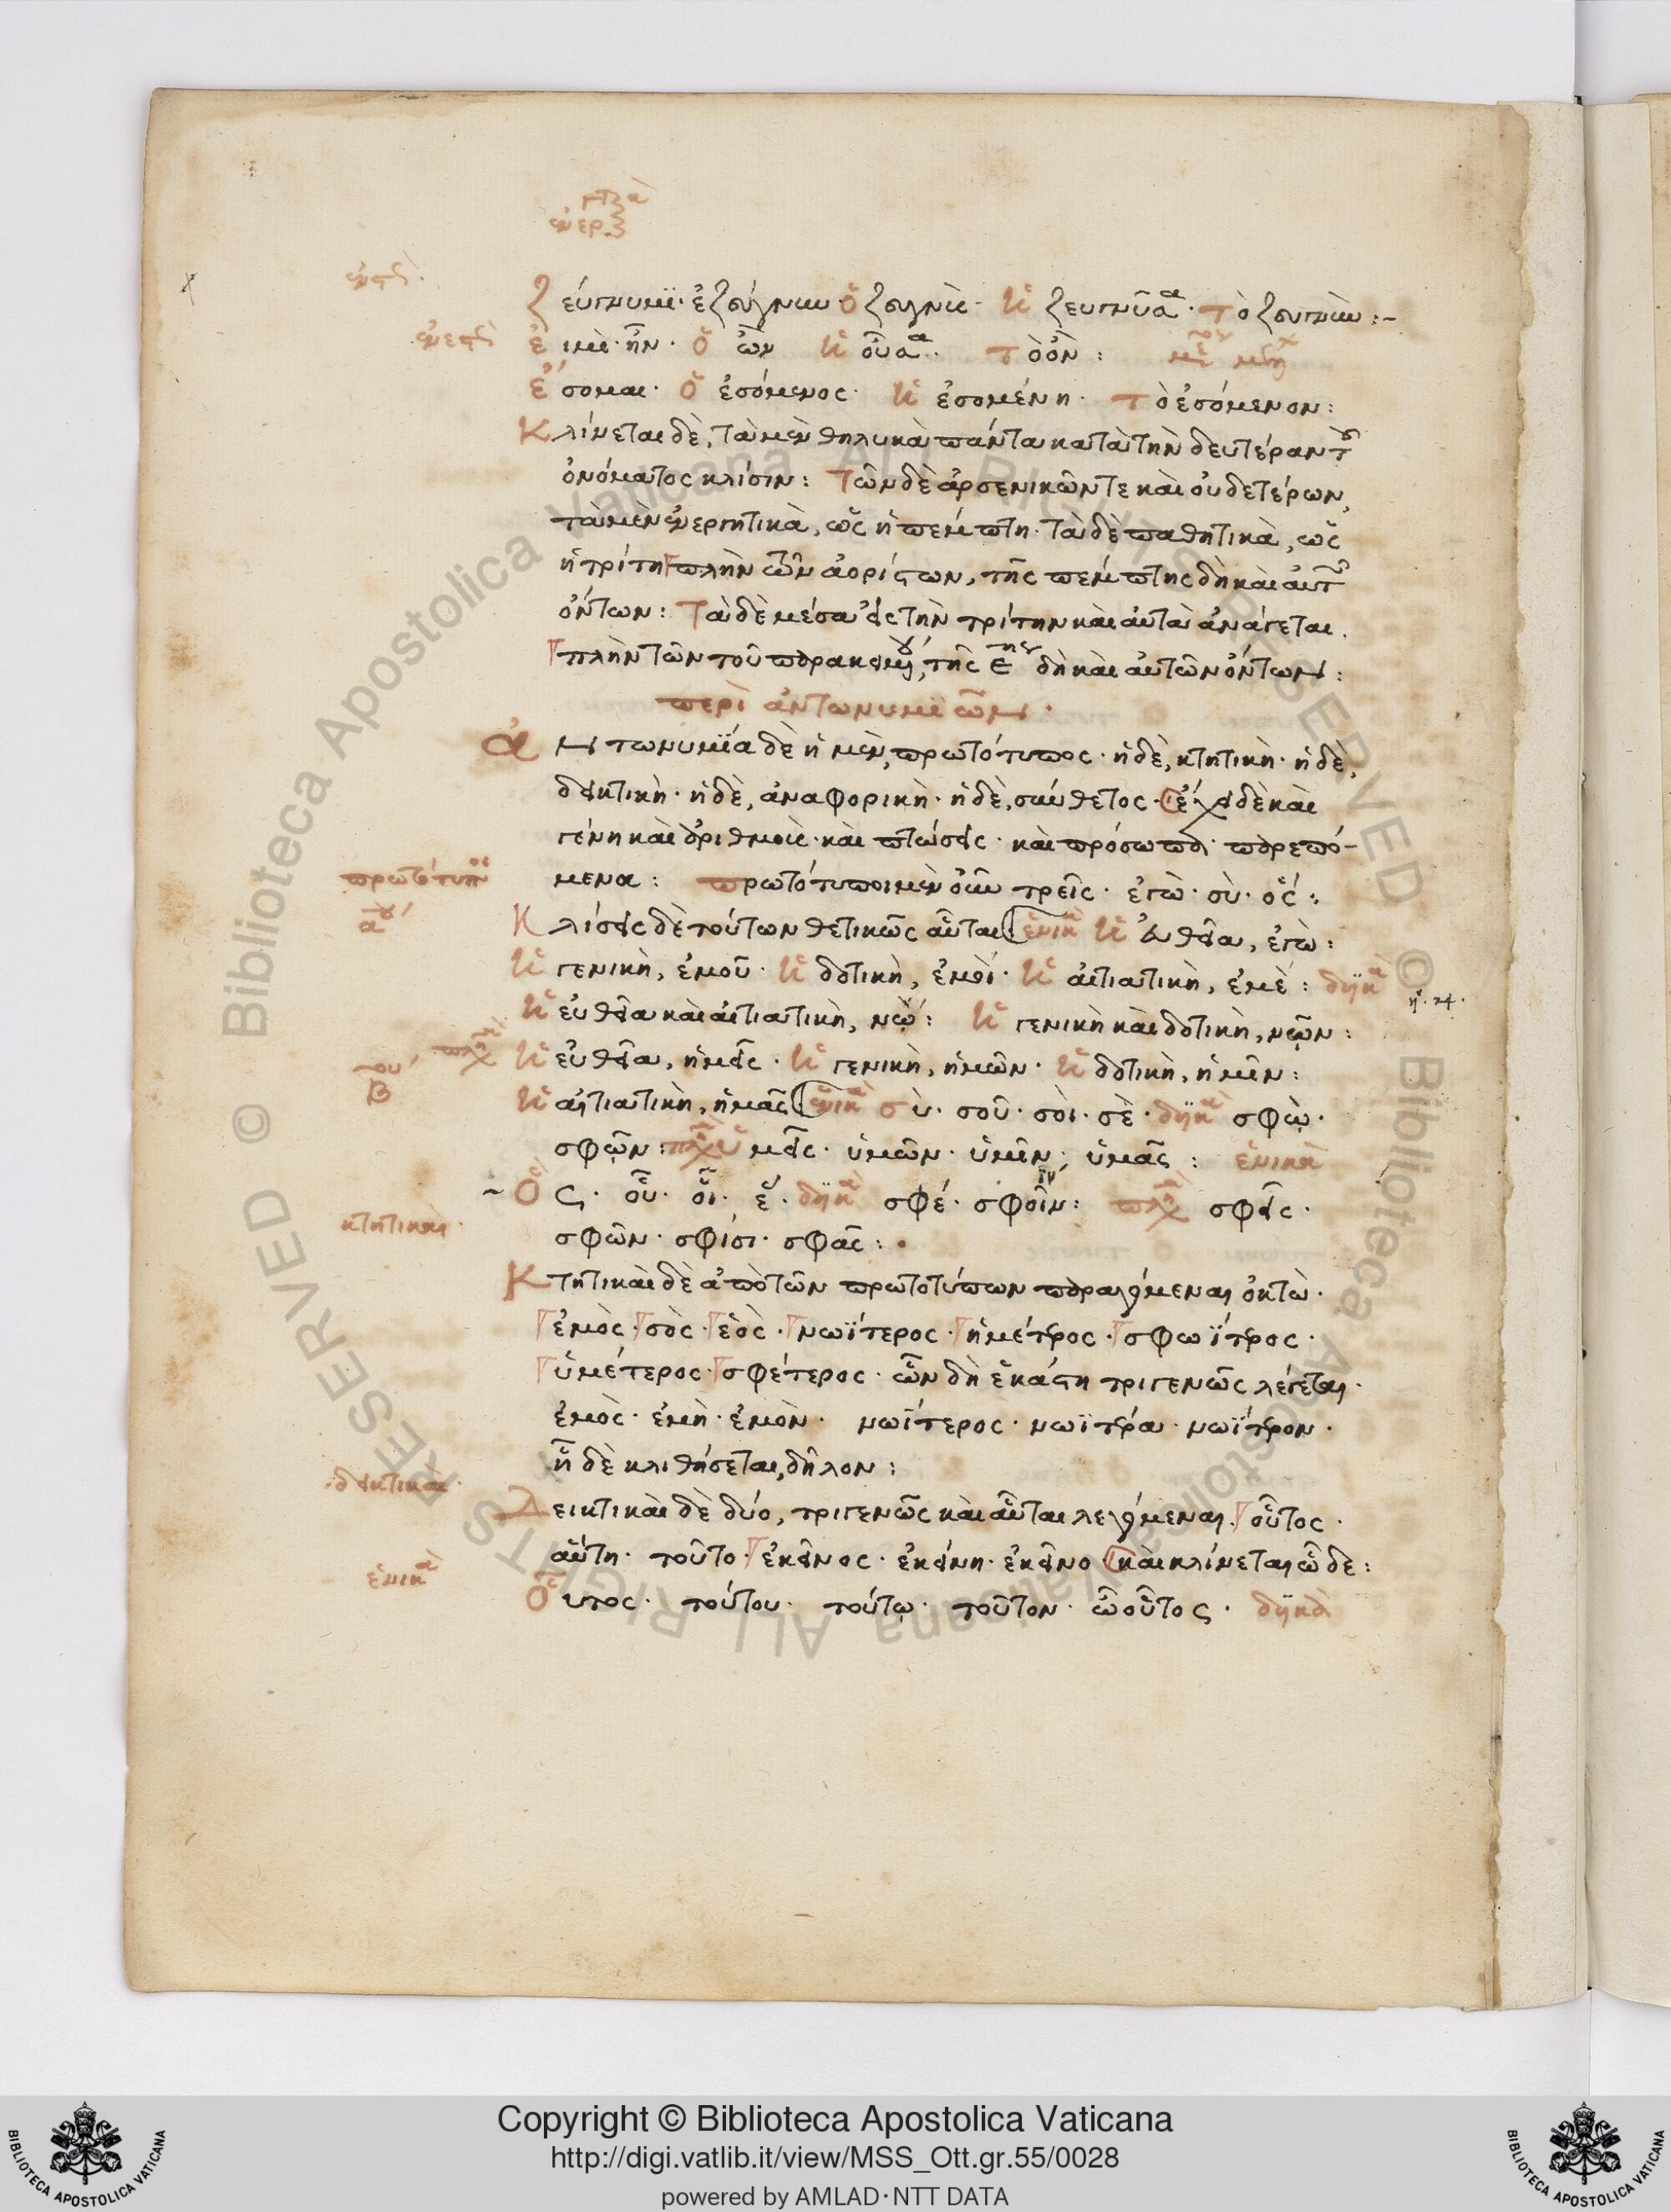 ζεύγνυμι· ἐζεύγνυν ὁ ζευγνὺς· ἡ ζευγνῦσα· τὸ ζευγνὺν:-
εἰμὶ· ἦν· ὁ ὢν ἡ οὖσα· τὸ ὂν:
ἔσομαι· ὁ ἐσόμενος· ἡ ἐσομένη· τὸ ἐσόμενον:
Κλίνεται δὲ, τὰ μὲν θηλυκὰ πάντα κατὰ τὴν δευτέραν τοῦ
ὀνόματος κλίσιν: Τῶν δὲ ἀρσενικῶν τε καὶ οὐδετέρων,
τὰ μὲν ἐνεργητικὰ, ὡς ἡ πέμπτη· τὰ δὲ παθητικὰ, ὡς
ἡ τρίτη πλὴν τῶν ἀορίστων, τῆς πέμπτης δὴ καὶ αὐτῶν
ὄντων: Τὰ δὲ μέσα εἰς τὴν τρίτην καὶ αὐτὰ ἀνάγεται.
πλὴν τῶν τοῦ παρακειμένου, τῆς ε δὴ καὶ αὐτῶν ὄντων:
περὶ ἀντωνυμιῶν·
ἀντωνυμία δὲ ἡ μὲν, πρωτότυπος· ἡ δὲ, κτητικὴ· ἡ δὲ,
δεικτικὴ· ἡ δὲ, ἀναφορικὴ· ἡ δὲ, σύνθετος· ἔχει δὲ καὶ
γένη καὶ ἀριθμοὺς· καὶ πτώσεις· καὶ πρόσωπα παρεπό-
μενα: πρωτότυποι μὲν οὖν τρεῖς· ἐγὼ· σὺ· ὅς:
πρωτότυποι
α
Κλίσεις δὲ τούτων θετικῶς αὗται: ἑνικὰ ἡ εὐθεῖα, ἐγὼ:
ἡ γενικὴ, ἐμοῦ· ἡ δοτικὴ, ἐμοὶ· ἡ αἰτιατικὴ, ἐμὲ: δυϊκὰ
ἡ εὐθεῖα καὶ αἰτιατικὴ, νῴ: ἡ γενικὴ καὶ δοτικὴ, νῷν:
ἡ εὐθεῖα, ἡμεῖς· ἡ γενικὴ, ἡμῶν· ἡ δοτικὴ, ἡμῖν:
β
ἡ αἰτιατικὴ, ἡμᾶς ἑνικὰ σὺ· σοῦ· σοὶ· σὲ· δυϊκὰ σφὼ·
σφῷν: ὑμεῖς· ὑμῶν· ὑμῖν, ὑμᾶς: ἑνικὰ
Ὅς· οὗ· οἷ· ἕ· δυϊκὰ σφέ· σφοῖν: σφεῖς·
κτητικαὶ·
σφῶν· σφίσι· σφᾶς:·
Κτητικαὶ δὲ ἀπὸ τῶν πρωτοτύπων παραγόμεναι ὀκτὼ·
ἐμὸς· σὸς· ἑὸς· νωΐτερος· ἡμέτερος· σφωΐτερος·
ὑμέτερος· σφέτερος· ὧν δὴ ἑκάστη τριγενῶς λέγεται·
ἐμὸς· ἐμὴ· ἐμὸν· νωΐτερος· νωϊτέρα· νωΐτερον·
ᾗ δὲ κλιθήσεται, δῆλον:
δεικτικαὶ·
Δεικτικαὶ δὲ δύο, τριγενῶς καὶ αὗται λεγόμεναι. οὗτος·
αὕτη· τοῦτο· ἐκεῖνος· ἐκείνη· ἐκεῖνο καὶ κλίνεται ὧδε:
ἑνικὰ
Οὗτος· τούτου· τούτῳ· τοῦτον· ὦ οὗτος· δυϊκὰ
Copyright © Biblioteca Apostolica Vaticana
http://digi.vatlib.it/view/MSS_Ott.gr.55/0028
powered by AMLAD·NTT DATA